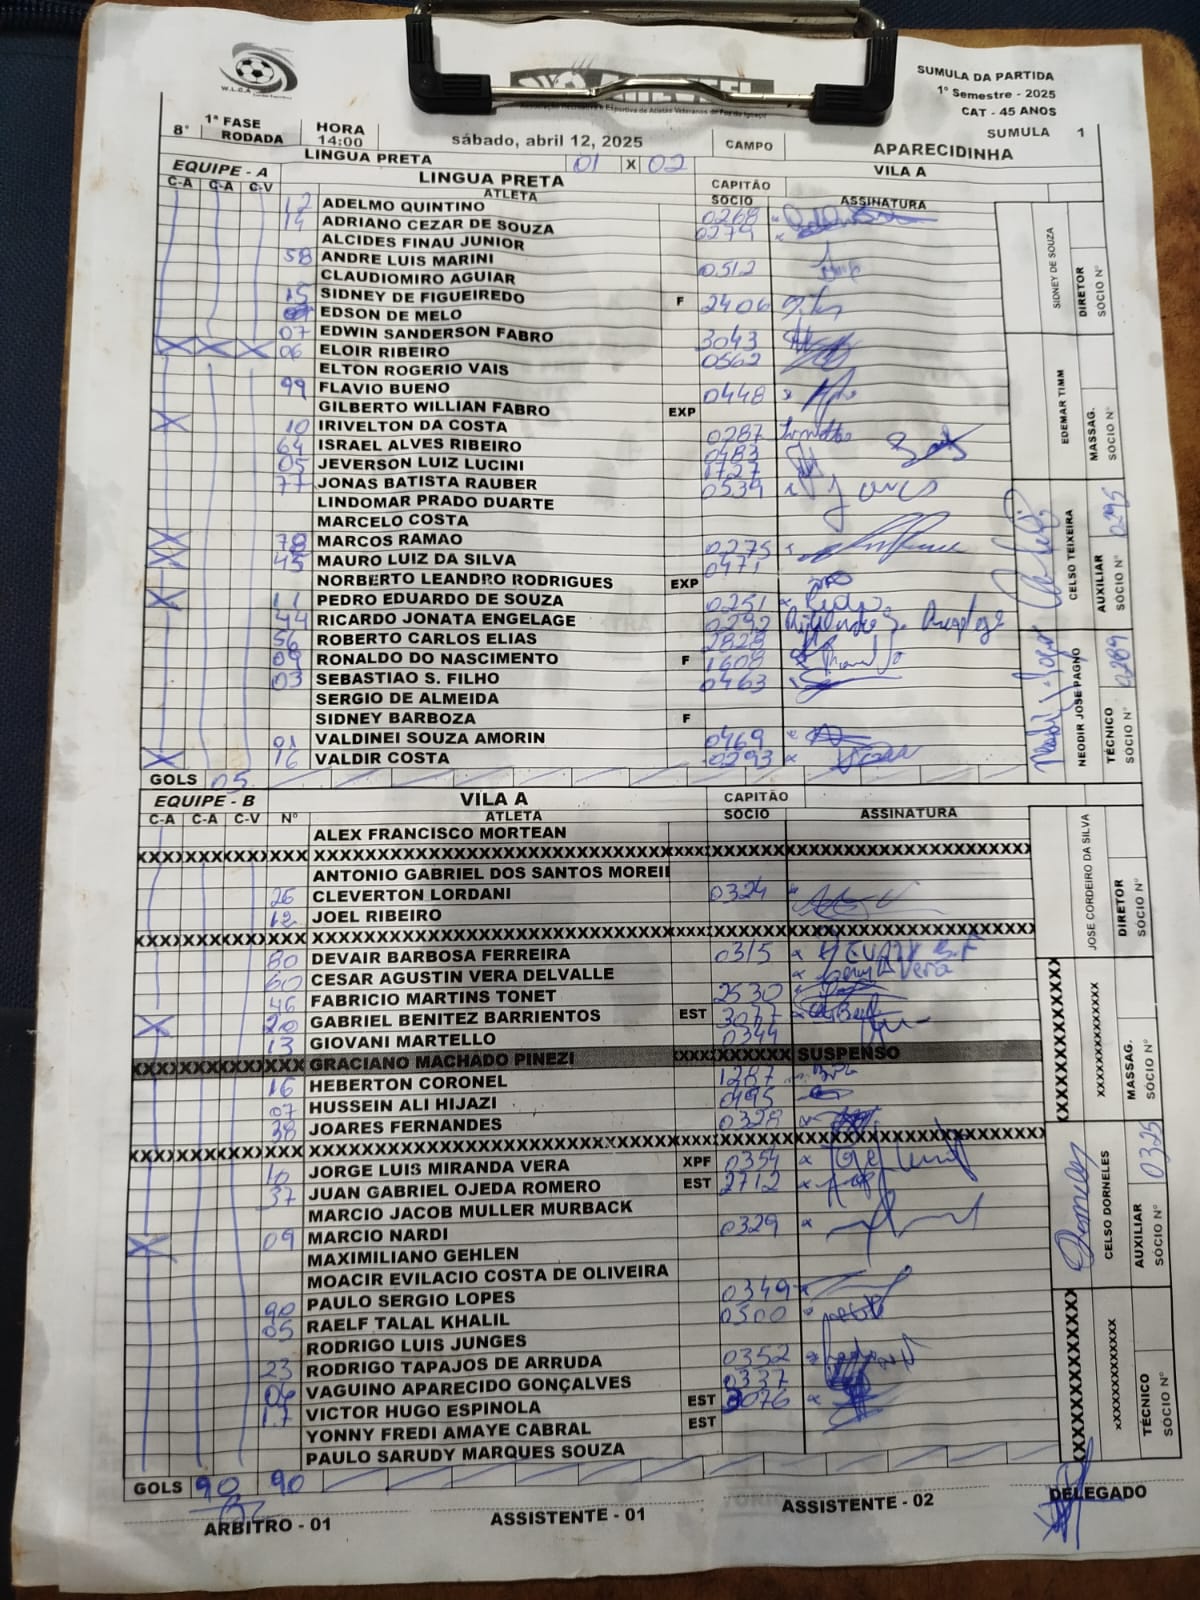 W.L.C.A
SUMULA DA PARTIDA
1º Semestre - 2025
CAT - 45 ANOS
SUMULA 1
8ª 1ª FASE RODADA HORA 14:00 sábado, abril 12, 2025 CAMPO APARECIDINHA
LINGUA PRETA 01 X 02 VILA A
EQUIPE - A LINGUA PRETA CAPITÃO
C-A C-A C-V ATLETA SOCIO ASSINATURA
12 ADELMO QUINTINO 0268
14 ADRIANO CEZAR DE SOUZA 0279
ALCIDES FINAU JUNIOR
58 ANDRE LUIS MARINI 0512
CLAUDIOMIRO AGUIAR
15 SIDNEY DE FIGUEIREDO F 2406
EDSON DE MELO
07 EDWIN SANDERSON FABRO 3043
06 ELOIR RIBEIRO 0562
ELTON ROGERIO VAIS
99 FLAVIO BUENO 0448
GILBERTO WILLIAN FABRO EXP
10 IRIVELTON DA COSTA 0287
64 ISRAEL ALVES RIBEIRO 0483
05 JEVERSON LUIZ LUCINI 1727
77 JONAS BATISTA RAUBER 0539
LINDOMAR PRADO DUARTE
MARCELO COSTA
78 MARCOS RAMAO 0275
45 MAURO LUIZ DA SILVA 0471
NORBERTO LEANDRO RODRIGUES EXP
11 PEDRO EDUARDO DE SOUZA 0251
44 RICARDO JONATA ENGELAGE 0292
56 ROBERTO CARLOS ELIAS 2828
09 RONALDO DO NASCIMENTO F 1608
03 SEBASTIAO S. FILHO 0463
SERGIO DE ALMEIDA
SIDNEY BARBOZA F
91 VALDINEI SOUZA AMORIN 0469
16 VALDIR COSTA 0293
GOLS 05
SIDNEY DE SOUZA
DIRETOR
SOCIO Nº
EDEMAR TIMM
MASSAG.
SOCIO Nº
CELSO TEIXEIRA
AUXILIAR
SOCIO Nº 0295
NEODIR JOSE PAGNO
TÉCNICO
SOCIO Nº 0289
EQUIPE - B VILA A CAPITÃO
C-A C-A C-V Nº ATLETA SOCIO ASSINATURA
ALEX FRANCISCO MORTEAN
ANTONIO GABRIEL DOS SANTOS MOREI
26 CLEVERTON LORDANI 0324
12 JOEL RIBEIRO
80 DEVAIR BARBOSA FERREIRA 0315
60 CESAR AGUSTIN VERA DELVALLE
46 FABRICIO MARTINS TONET 2530
20 GABRIEL BENITEZ BARRIENTOS EST 3077
13 GIOVANI MARTELLO 0344
GRACIANO MACHADO PINEZI SUSPENSO
16 HEBERTON CORONEL 1287
07 HUSSEIN ALI HIJAZI 0495
38 JOARES FERNANDES 0328
10 JORGE LUIS MIRANDA VERA XPF 0354
37 JUAN GABRIEL OJEDA ROMERO EST 2712
MARCIO JACOB MULLER MURBACK
09 MARCIO NARDI 0329
MAXIMILIANO GEHLEN
MOACIR EVILACIO COSTA DE OLIVEIRA
90 PAULO SERGIO LOPES 0349
05 RAELF TALAL KHALIL 0500
RODRIGO LUIS JUNGES
23 RODRIGO TAPAJOS DE ARRUDA 0352
06 VAGUINO APARECIDO GONÇALVES 0337
17 VICTOR HUGO ESPINOLA EST 3076
YONNY FREDI AMAYE CABRAL EST
PAULO SARUDY MARQUES SOUZA
GOLS 90 90
JOSE CORDEIRO DA SILVA
DIRETOR
SÓCIO Nº
MASSAG.
SÓCIO Nº
CELSO DORNELES
AUXILIAR
SÓCIO Nº 0325
TÉCNICO
SÓCIO Nº
ARBITRO - 01 ASSISTENTE - 01 ASSISTENTE - 02 DELEGADO